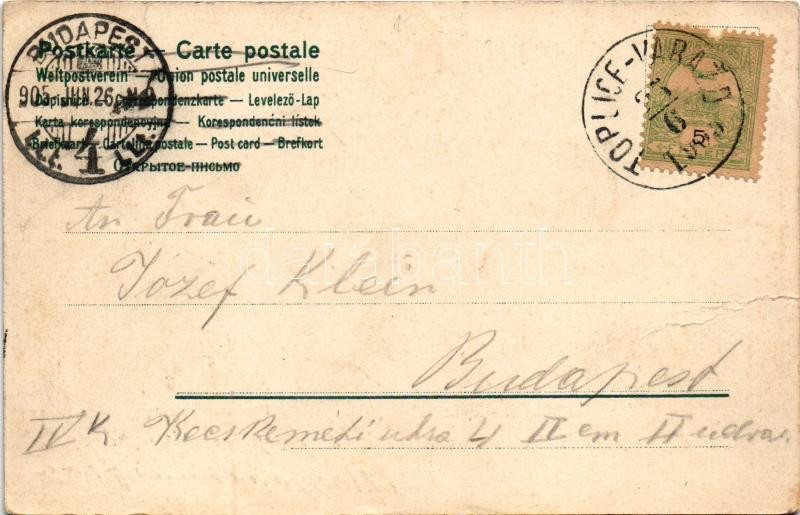 Postkarte — Carte postale
Weltpostverein — Union postale universelle
Dopisnice — Correspondenzkarte — Levelező-Lap
Karta korespondencyjna — Korespondenční lístek
Briefkaart — Cartolina postale — Post card — Brefkort
Открытое-письмо
BUDAPEST
905 JUN. 26
4
TOPLICE-VARAŽD
6
5
An Frau
Józef Klein
Budapest
IV k. Kecskeméti utca 4 II em II udvar
darabanth